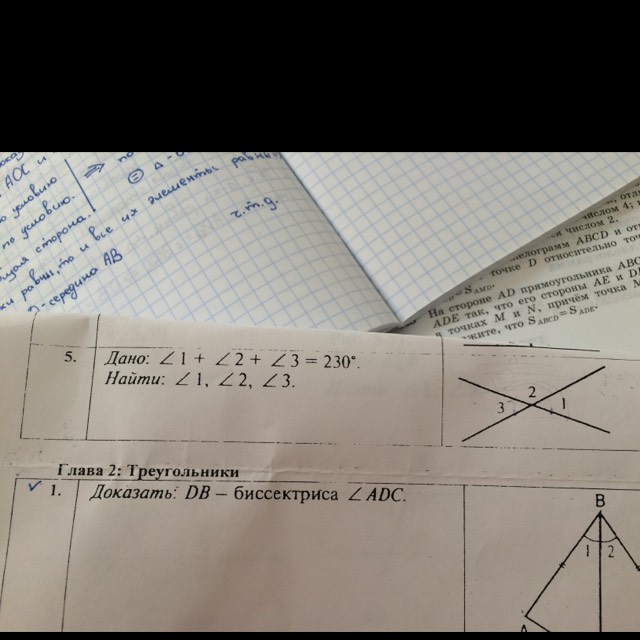 АОС и
условию
по условию.
сторона.
равны, то и все их элементы равны,
ч.т.д.
середина AB
числом 4;
числом 2.
ABCD и
точке D относительно
На стороне AD прямоугольника ABC
ADE так, что его стороны AE и D
в точках M и N, причём точка M
что S_ABCD = S_ADE.
5. Дано: ∠1 + ∠2 + ∠3 = 230°.
Найти: ∠1, ∠2, ∠3.
2
3 1
Глава 2: Треугольники
1. Доказать: DB – биссектриса ∠ADC.
B
1 2
A